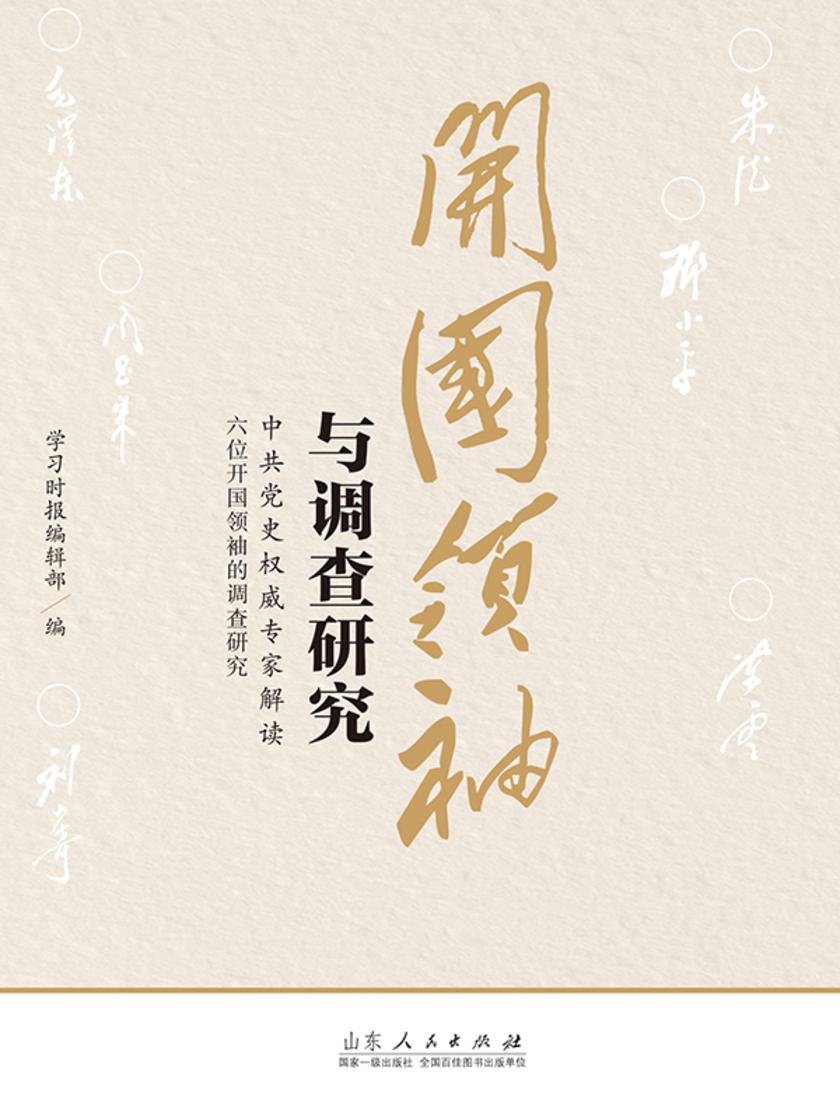 開國領袖
与调查研究
中共党史权威专家解读
六位开国领袖的调查研究
学习时报编辑部／编
毛泽东
周恩来
刘少奇
朱德
邓小平
陈云
山东人民出版社
国家一级出版社 全国百佳图书出版单位